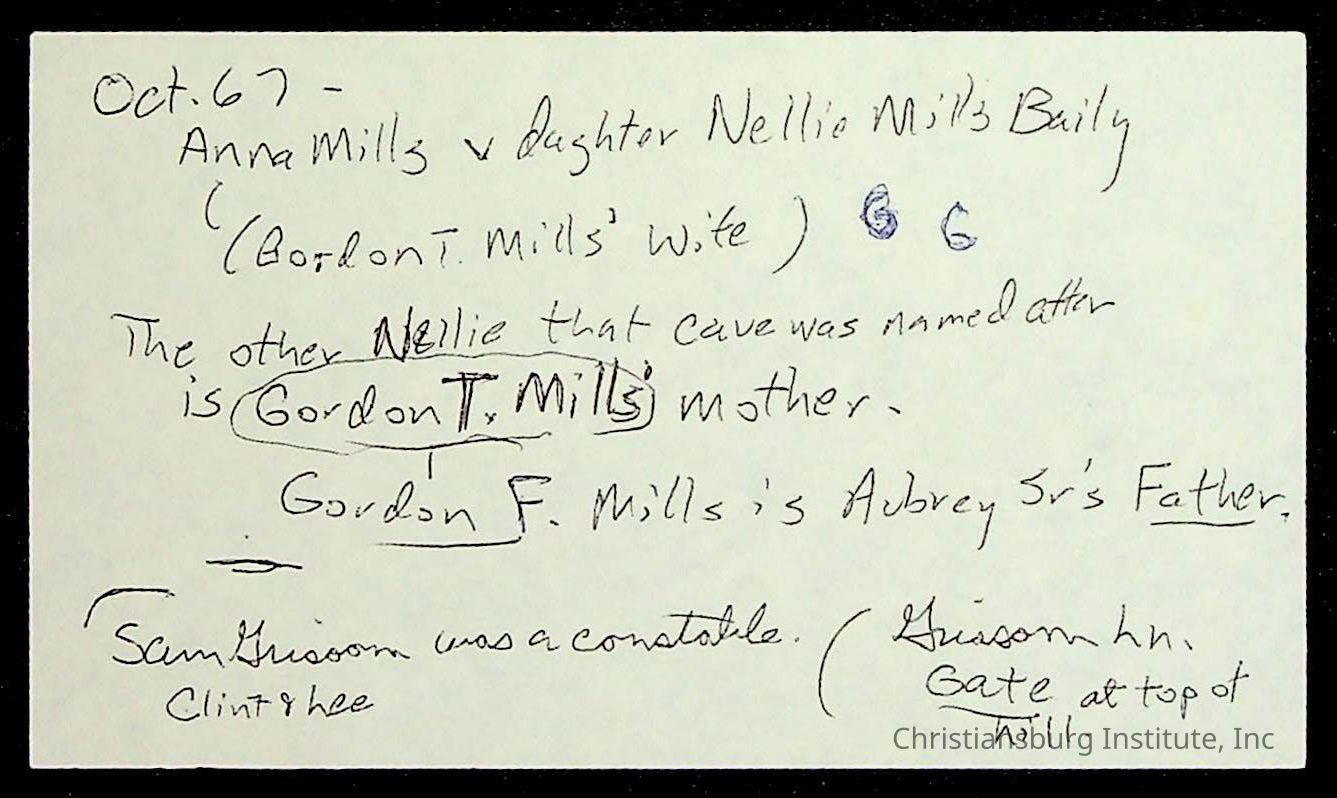 Oct. 67 -
Anna Mills v daghter Nellie Mills Baily
( (Gordon T. Mills' wife ) G G
The other Nellie that cave was named after
is Gordon T. Mills' mother.
Gordon F. Mills is Aubrey Sr's Father.
Sam Grissom was a constable. ( Grissom Ln.
Clint & Lee Gate at top of
hill.
Christiansburg Institute, Inc